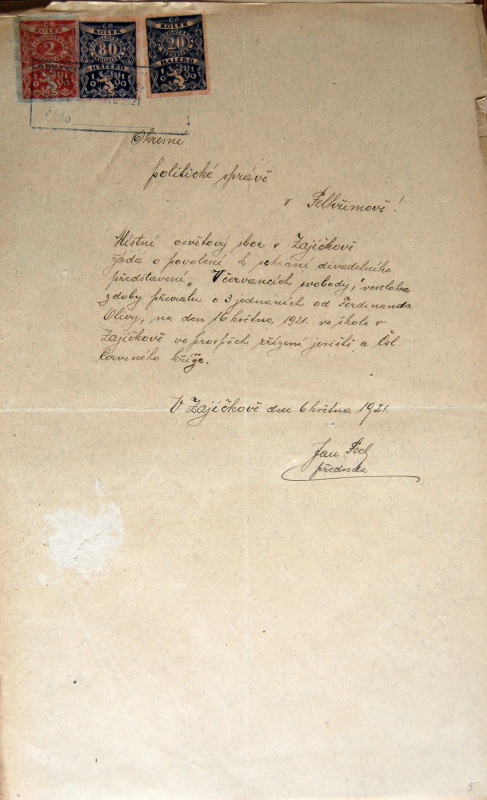 KOLEK KOLEK KOLEK
2 80 20
KORUNY HALÉŘŮ HALÉŘŮ
Číslo
Okresní
politické správě
v Pelhřimově!
Místní osvětový sbor v Zajíčkově
žádá o povolení k sehrání divadelního
představení „V červancích svobody", veselohra
z doby převratu o 3 jednáních od Ferdinanda
Olivy, na den 16 května 1921. ve škole v
Zajíčkově ve prospěch zřízení jeviště a čsl.
Červeného kříže.
V Zajíčkově dne 6 května 1921.
Jan
předseda
5